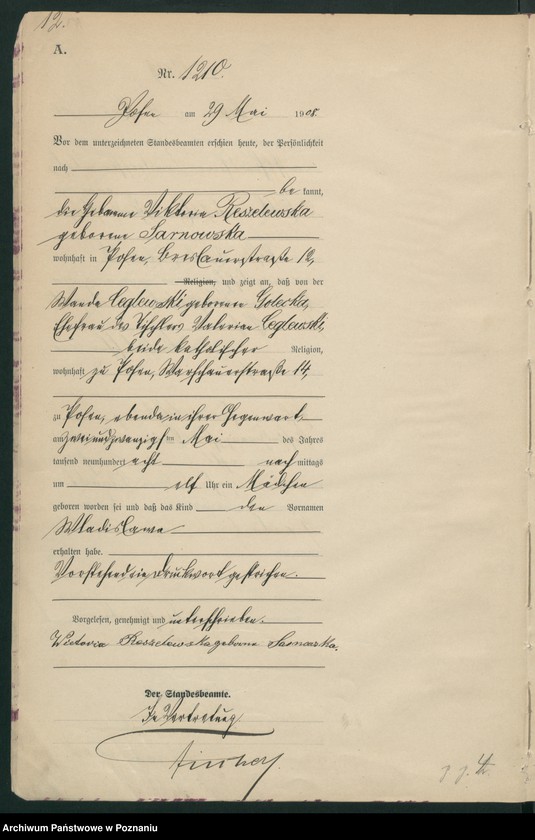 12.
A.
Nr. 1210.
Posen am 29 Mai 1908.
Vor dem unterzeichneten Standesbeamten erschien heute, der Persönlichkeit
nach
be kannt,
die Hebamme Viktoria Reszelewska
geborene Sarnowska
wohnhaft in Posen, Breslauerstraße 12,
Religion, und zeigt an, daß von der
Wanda Ceglewski geborenen Golecka,
Ehefrau des Tischlers Valerian Ceglewski,
beide katholischer Religion,
wohnhaft zu Posen, Warschauerstraße 14,
zu Posen, ebenda in ihrer Gegenwart
am zweiundzwanzigsten Mai des Jahres
tausend neunhundert acht nach mittags
um elf Uhr ein Mädchen
geboren worden sei und daß das Kind den Vornamen
Wladislawa
erhalten habe.
Vorstehend ein Druckwort gestrichen.
Vorgelesen, genehmigt und unterschrieben.
Wictoria Reszelewska geborne Sarnowska.
Der Standesbeamte.
In Vertretung
Archiwum Państwowe w Poznaniu